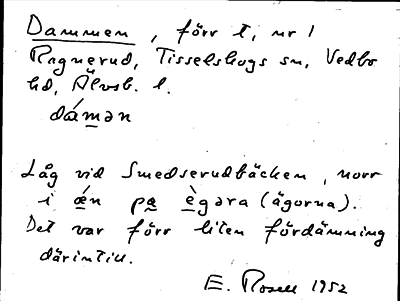 Dammen, förr t, nr 1
Ragnerud, Tisselskogs sn, Vedbo
hd, Älvsb. l.
dámən
Låg vid Smedserudbäcken, norr
i ǽn pa ègəra (ägorna).
Det var förr liten fördämning
därintill.
E. Rosell 1952